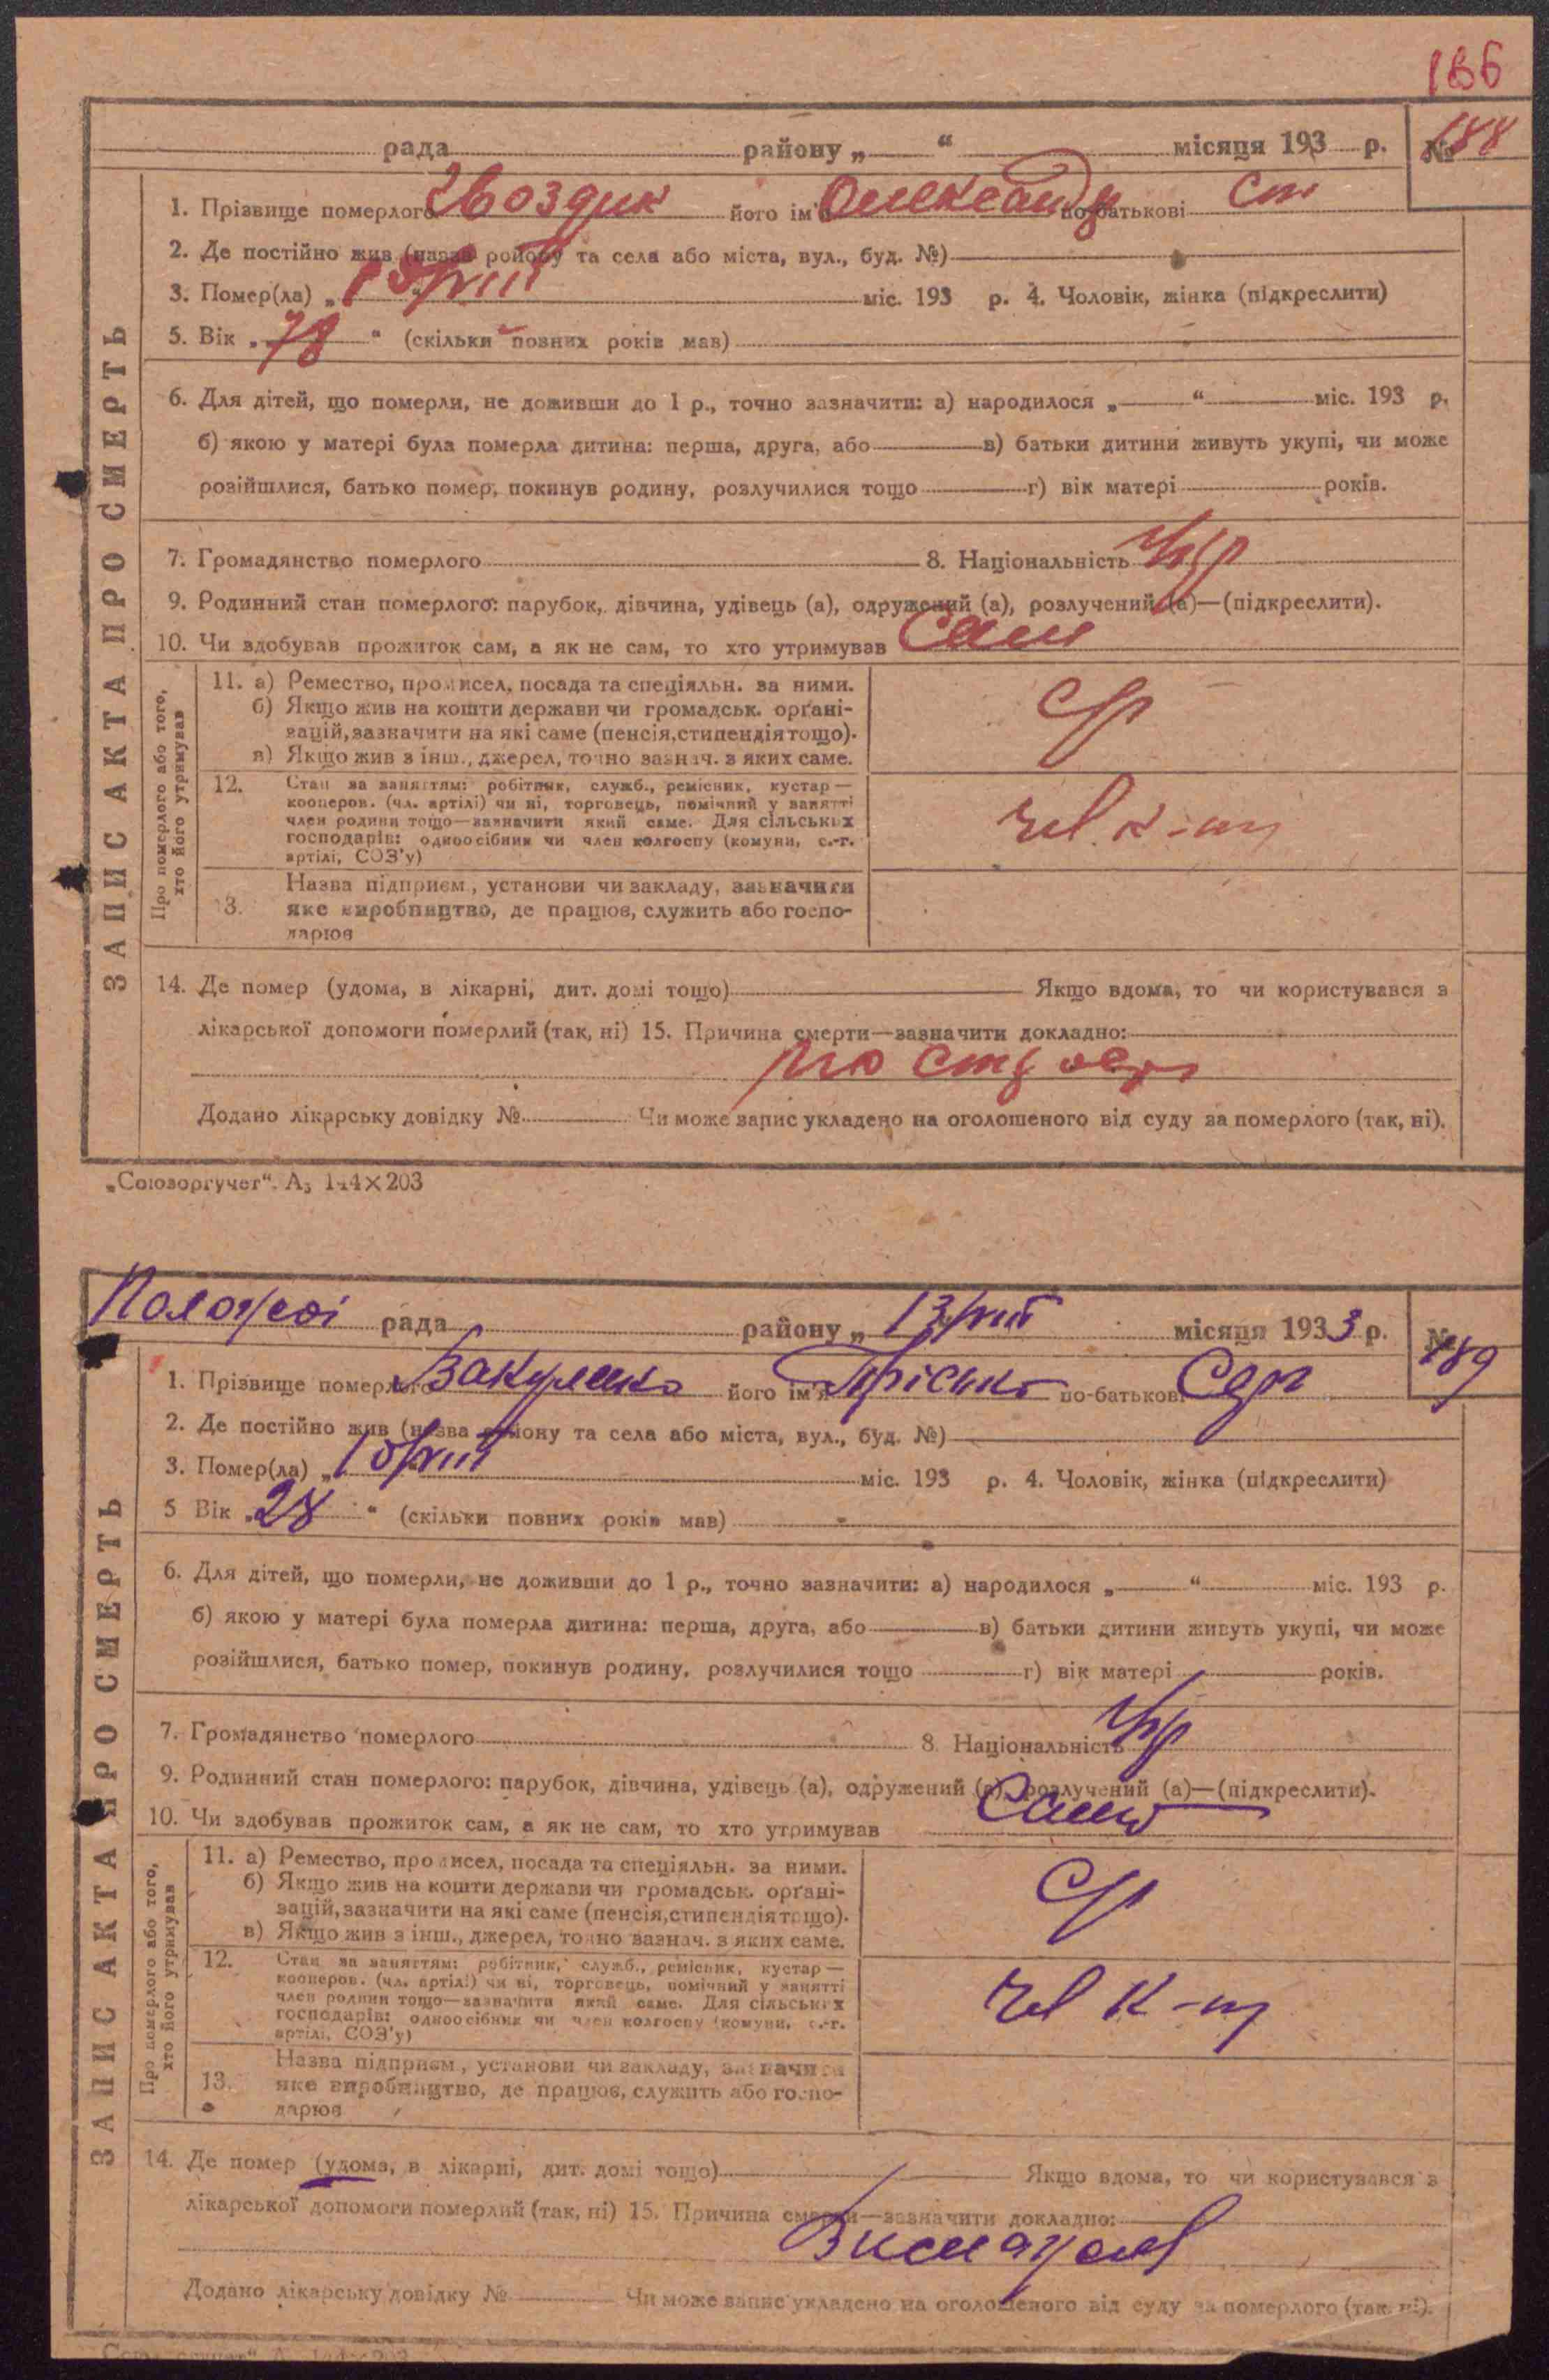 186
рада района „ “ місяця 193 р. № 188
1. Прізвище померлого Гвоздик його ім'я Олександр по-батькові Ст
2. Де постійно жив (назва району та села або міста, вул., буд. №)
3. Помер(ла) „ “ міс. 193 р. 4. Чоловік, жінка (підкреслити)
5. Вік „78“ (скільки повних років мав)
6. Для дітей, що померли, не доживши до 1 р., точно зазначити: а) народилося „ “ міс. 193 р.
б) якою у матері була померла дитина: перша, друга, або в) батьки дитини живуть укупі, чи може
розійшлися, батько помер, покинув родину, розлучилися тощо г) вік матері років.
7. Громадянство померлого 8. Національність Укр
9. Родинний стан померлого: парубок, дівчина, удівець (а), одружений (а), розлучений (а)—(підкреслити).
10. Чи здобував прожиток сам, а як не сам, то хто утримував Сам
ЗАПИС АКТА ПРО СМЕРТЬ
Про померлого або того, хто його утримував
11. а) Ремество, промисел, посада та спеціяльн. за ними.
б) Якщо жив на кошти держави чи громадськ. орґані-
зацій, зазначити на які саме (пенсія, стипендія тощо).
в) Якщо жив з інш., джерел, точно зазнач. з яких саме.
Ср
12. Стан за заняттям: робітник, служб., ремісник, кустар—
кооперов. (чл. артілі) чи ні, торговець, помічний у занятті
член родини тощо—зазначити який саме. Для сільських
господарів: одноосібник чи член колгоспу (комуни, с.-г.
артілі, СОЗ'у)
Чл. к-пу
Назва підприєм., установи чи закладу, зазначити
13. яке виробництво, де працюв, служить або госпо-
дарюв
14. Де помер (удома, в лікарні, дит. домі тощо) Якщо вдома, то чи користувався з
лікарської допомоги померлий (так, ні) 15. Причина смерти—зазначити докладно:
по старості
Додано лікарську довідку № Чи може запис укладено на оголошеного від суду за померлого (так, ні).
„Союзоргучет“. А₅ 144×203
рада району „13/VIII місяця 1933 р. № 189
1. Прізвище померлого Вакуленко його ім'я Пріська по-батькові Серг
2. Де постійно жив (назва району та села або міста, вул., буд. №)
3. Помер(ла) „ “ міс. 193 р. 4. Чоловік, жінка (підкреслити)
5 Вік „28“ (скільки повних років мав)
6. Для дітей, що померли, не доживши до 1 р., точно зазначити: а) народилося „ “ міс. 193 р.
б) якою у матері була померла дитина: перша, друга, або в) батьки дитини живуть укупі, чи може
розійшлися, батько помер, покинув родину, розлучилися тощо г) вік матері років.
7. Громадянство померлого 8. Національність Укр
9. Родинний стан померлого: парубок, дівчина, удівець (а), одружений (а), розлучений (а)—(підкреслити).
10. Чи здобував прожиток сам, а як не сам, то хто утримував Сама
ЗАПИС АКТА ПРО СМЕРТЬ
Про померлого або того, хто його утримував
11. а) Ремество, промисел, посада та спеціяльн. за ними.
б) Якщо жив на кошти держави чи громадськ. орґані-
зацій, зазначити на які саме (пенсія, стипендія тощо).
в) Якщо жив з інш., джерел, точно зазнач. з яких саме.
Ср
12. Стан за заняттям: робітник, служб., ремісник, кустар—
кооперов. (чл. артілі) чи ні, торговець, помічний у занятті
член родини тощо—зазначити який саме. Для сільських
господарів: одноосібник чи член колгоспу (комуни, с.-г.
артілі, СОЗ'у)
Чл к-пу
Назва підприєм., установи чи закладу, зазначити
13. яке виробництво, де працюв, служить або госпо-
дарюв
14. Де помер (удома, в лікарні, дит. домі тощо) Якщо вдома, то чи користувався з
лікарської допомоги померлий (так, ні) 15. Причина смерти—зазначити докладно:
Додано лікарську довідку № Чи може запис укладено на оголошеного від суду за померлого (так, ні).